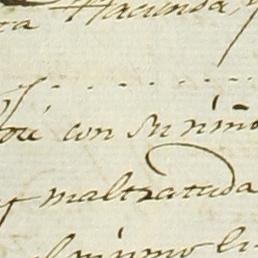 ta Hacienda, y
con su niño
y maltratada
mismo